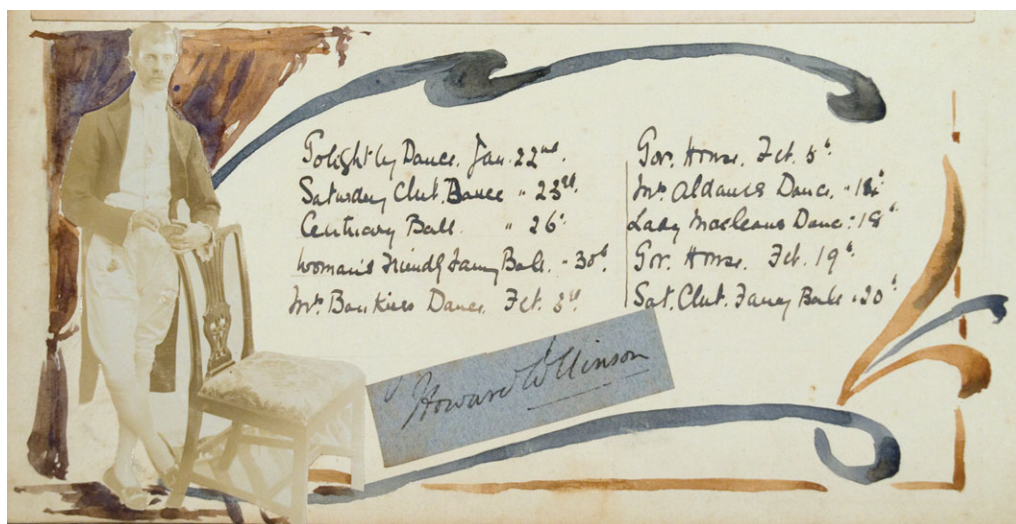 Golightly Dance. Jan. 22nd.
Saturday Club. Dance " 23rd.
Centuary Ball. " 26th
Woman's Friendly Fancy Ball. " 30th
Mrs Dance. Feb. 3rd
Gov. House. Feb. 5th.
Mrs Dance. "
Lady Macleans Dance: 18th
Gov. House. Feb. 19th
Sat. Club. Fancy Ball " 20th
Howard